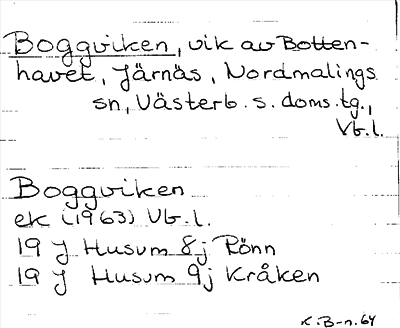 Boggviken, vik av Botten-
havet, Järnäs, Nordmalings
sn, Västerb. s. doms.tg.,
Vb.l.
Boggviken
ek (1963) Vb.l.
19 J Husum 8j Rönn
19 J Husum 9j Kråken
K.B-n.64